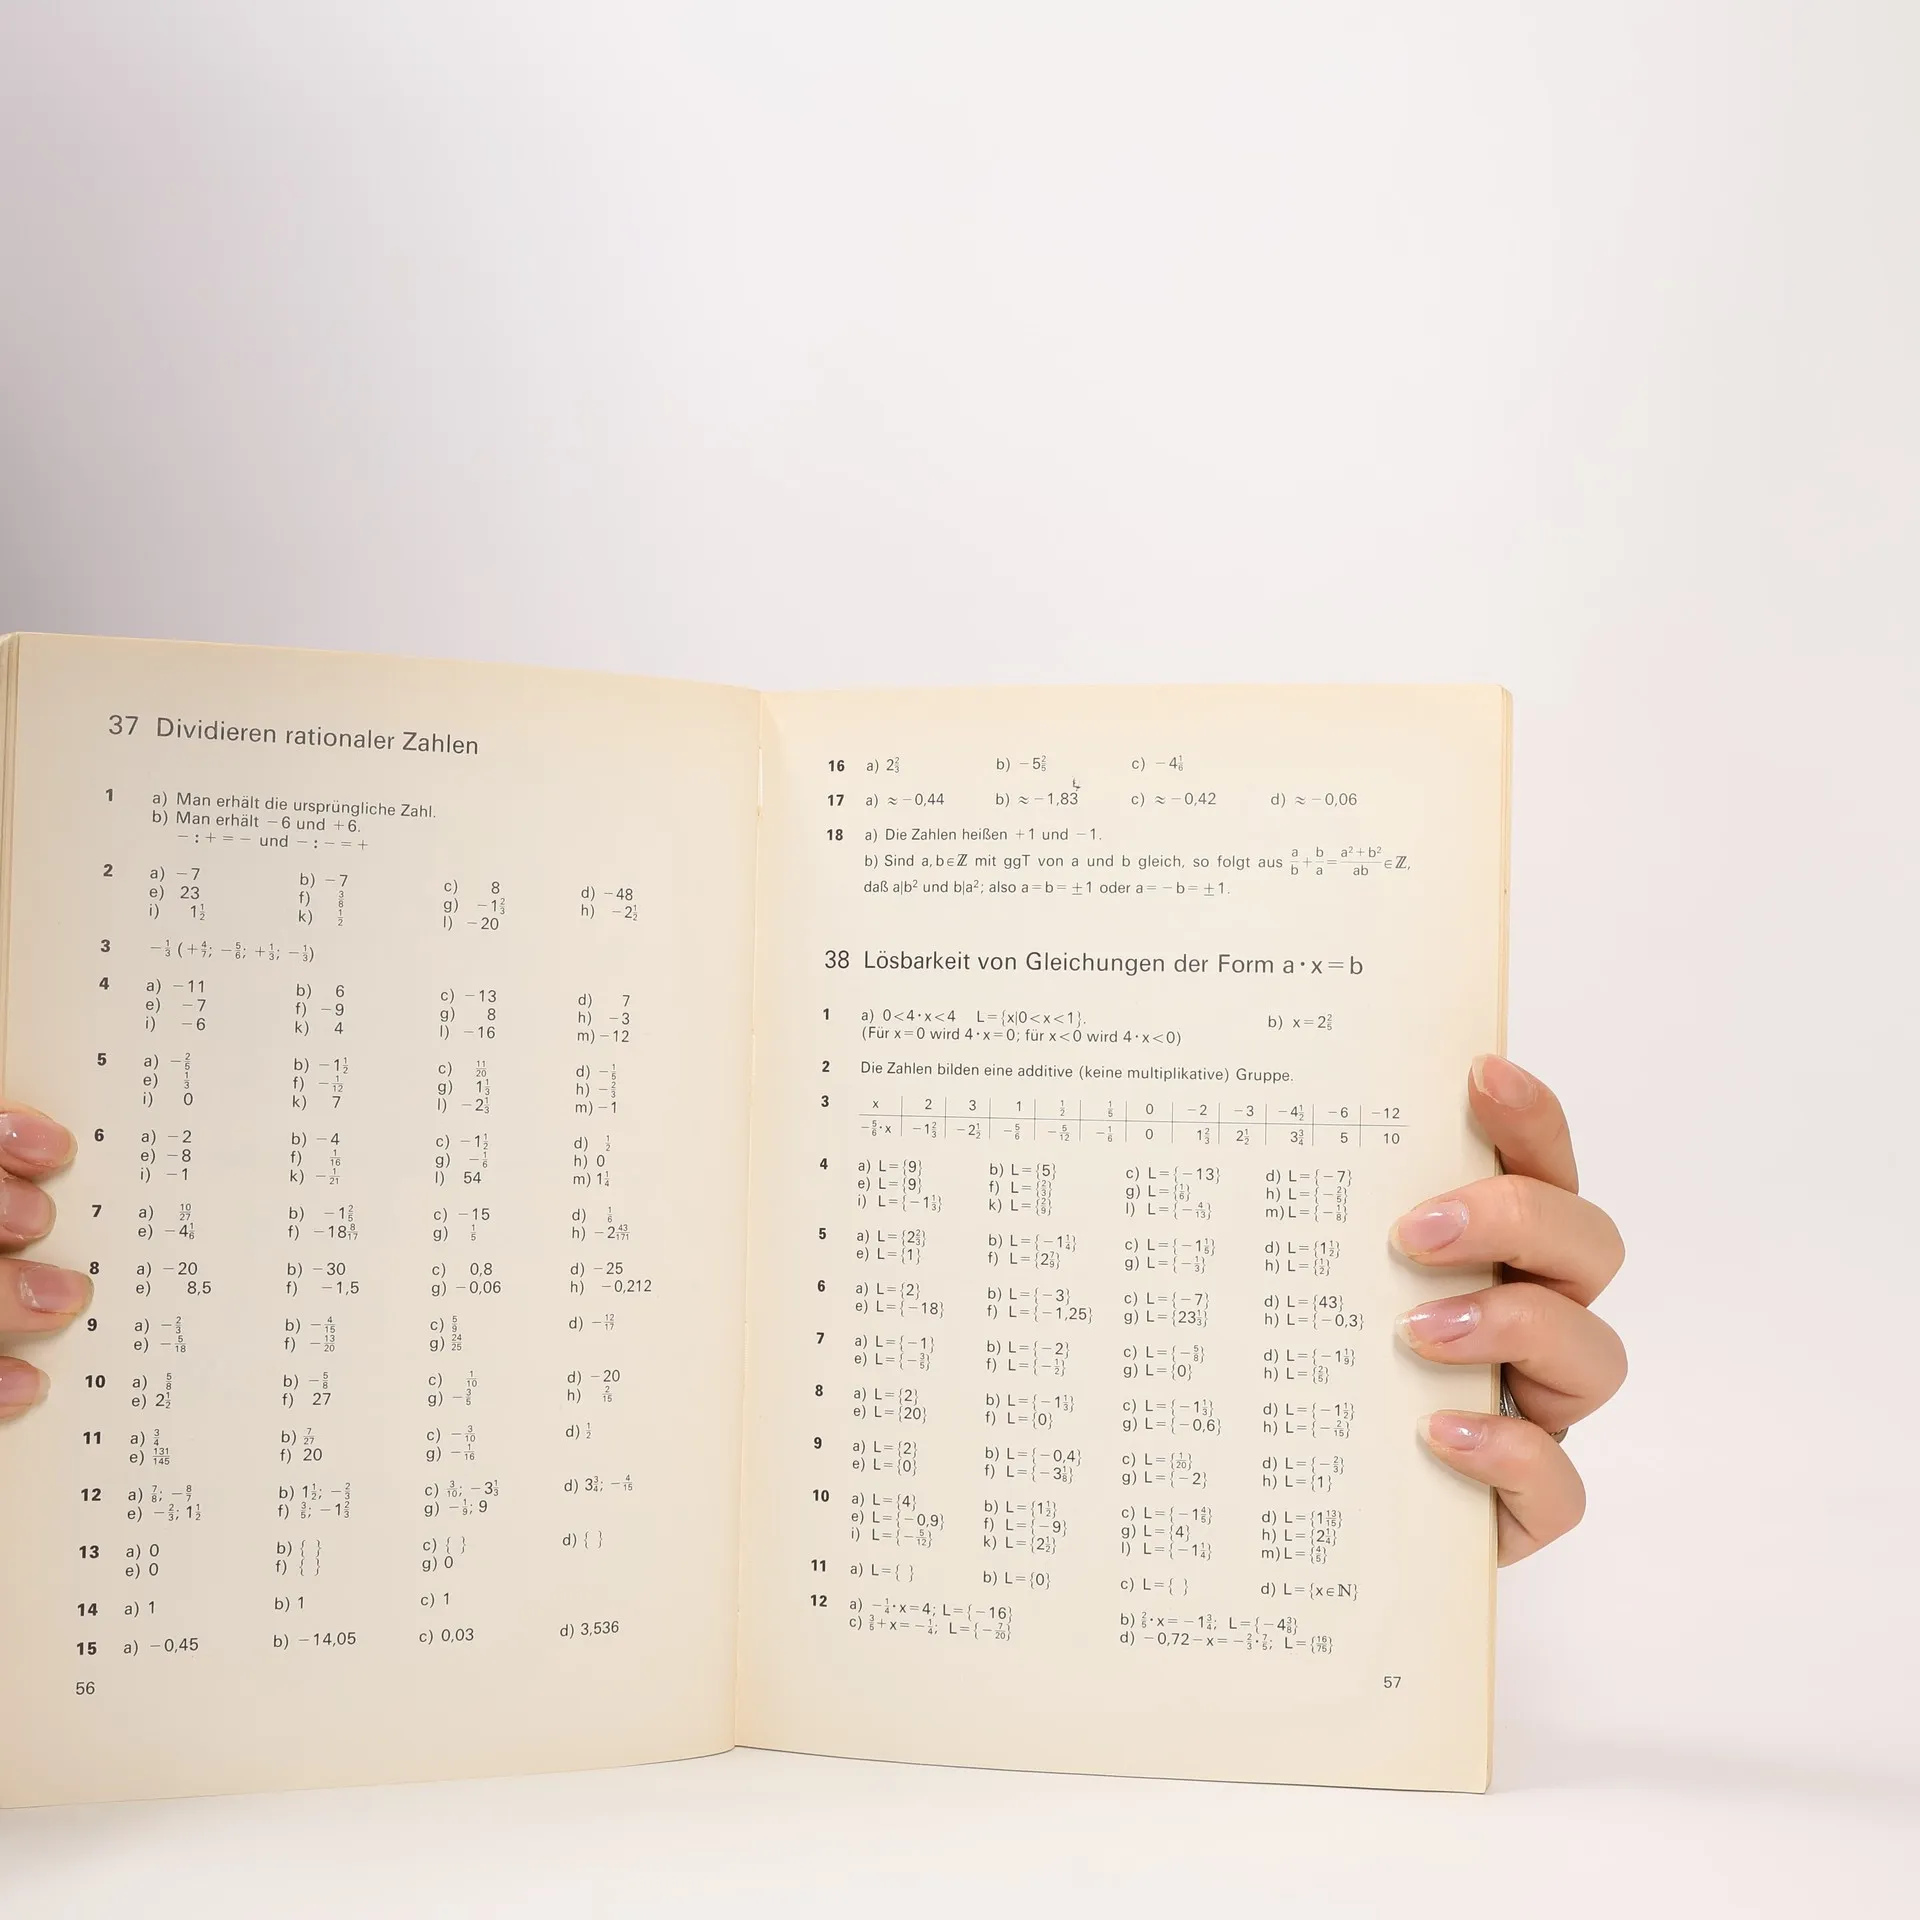 37 Dividieren rationaler Zahlen
1 a) Man erhält die ursprüngliche Zahl.
b) Man erhält −6 und +6.
− : + = − und − : − = +
2 a) −7 b) −7 c) 8 d) −48
e) 23 f) 3/8 g) −1 2/3 h) −2 1/2
i) 1 1/2 k) 1/2 l) −20
3 −1/3 (+4/7; −5/6; +1/3; −1/3)
4 a) −11 b) 6 c) −13 d) 7
e) −7 f) −9 g) 8 h) −3
i) −6 k) 4 l) −16 m) −12
5 a) −2/5 b) −1 1/2 c) 11/20 d) −1/5
e) 1/3 f) −1/12 g) 1 1/3 h) −2/3
i) 0 k) 7 l) −2 1/3 m) −1
6 a) −2 b) −4 c) −1 1/2 d) 1/2
e) −8 f) 1/16 g) −1/6 h) 0
i) −1 k) −1/21 l) 54 m) 1 1/4
7 a) 10/27 b) −1 2/5 c) −15 d) 1/6
e) −4 1/6 f) −18 8/17 g) 1/5 h) −2 43/171
8 a) −20 b) −30 c) 0,8 d) −25
e) 8,5 f) −1,5 g) −0,06 h) −0,212
9 a) −2/3 b) −4/15 c) 5/9 d) −12/17
e) −5/18 f) −13/20 g) 24/25
10 a) 5/8 b) −5/8 c) 1/10 d) −20
e) 2 1/2 f) 27 g) −3/5 h) 2/15
11 a) 3/4 b) 7/27 c) −3/10 d) 1/2
e) 131/145 f) 20 g) −1/16
12 a) 7/8; −8/7 b) 1 1/2; −2/3 c) 3/10; −3 1/3 d) 3 3/4; −4/15
e) −2/3; 1 1/2 f) 3/5; −1 2/3 g) −1/9; 9
13 a) 0 b) { } c) { } d) { }
e) 0 f) { } g) 0
14 a) 1 b) 1 c) 1
15 a) −0,45 b) −14,05 c) 0,03 d) 3,536
56
16 a) 2 2/3 b) −5 2/5 c) −4 1/6
17 a) ≈ −0,44 b) ≈ −1,83 c) ≈ −0,42 d) ≈ −0,06
18 a) Die Zahlen heißen +1 und −1.
b) Sind a, b ∈ ℤ mit ggT von a und b gleich, so folgt aus a/b + b/a = a²+b²/ab ∈ ℤ,
daß a|b² und b|a²; also a = b = ±1 oder a = −b = ±1.
38 Lösbarkeit von Gleichungen der Form a·x=b
1 a) 0<4·x<4 L={x|0<x<1}. b) x=2 2/5
(Für x=0 wird 4·x=0; für x<0 wird 4·x<0)
2 Die Zahlen bilden eine additive (keine multiplikative) Gruppe.
3 x 2 3 1 1/2 1/5 0 −2 −3 −4 1/2 −6 −12
−5/6·x −1 2/3 −2 1/2 −5/6 −5/12 −1/6 0 1 2/3 2 1/2 3 3/4 5 10
4 a) L={9} b) L={5} c) L={−13} d) L={−7}
e) L={9} f) L={2/3} g) L={1/6} h) L={−2/5}
i) L={−1 1/3} k) L={2/9} l) L={−4/13} m) L={−1/8}
5 a) L={2 2/3} b) L={−1 1/4} c) L={−1 1/5} d) L={1 1/2}
e) L={1} f) L={2 7/9} g) L={−1/3} h) L={1/2}
6 a) L={2} b) L={−3} c) L={−7} d) L={43}
e) L={−18} f) L={−1,25} g) L={23 1/3} h) L={−0,3}
7 a) L={−1} b) L={−2} c) L={−5/8} d) L={−1 1/9}
e) L={−3/5} f) L={−1/2} g) L={0} h) L={2/5}
8 a) L={2} b) L={−1 1/3} c) L={−1 1/3} d) L={−1 1/2}
e) L={20} f) L={0} g) L={−0,6} h) L={−2/15}
9 a) L={2} b) L={−0,4} c) L={1/20} d) L={−2/3}
e) L={0} f) L={−3 1/8} g) L={−2} h) L={1}
10 a) L={4} b) L={1 1/2} c) L={−1 4/5} d) L={1 13/15}
e) L={−0,9} f) L={−9} g) L={4} h) L={2 1/4}
i) L={−5/12} k) L={2 1/2} l) L={−1 1/4} m) L={4/5}
11 a) L={ } b) L={0} c) L={ } d) L={x∈ℕ}
12 a) −1/4·x=4; L={−16} b) 2/5·x=−1 3/4; L={−4 3/8}
c) 3/5+x=−1/4; L={−7/20} d) −0,72−x=−2/3·7/5; L={16/75}
57